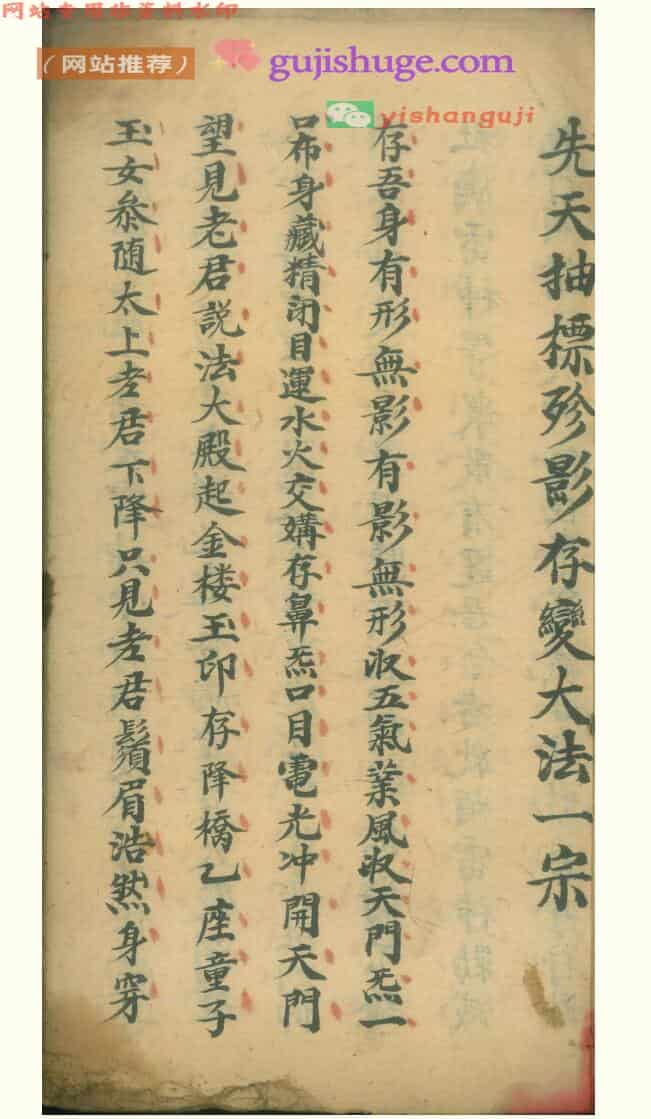 网站专用佐资料水印
（网站推荐）
gujishuge.com
yishanguji
先天抽標殄影存變大法一宗
存吾身有形無影有影無形収五氣業風収天門炁一
口布身藏精闭目運水火交媾存鼻炁口目電光冲開天門
望見老君説法大殿起金楼玉印存降橋乙座童子
玉女叅随太上老君下降只見老君鬚眉浩然身穿